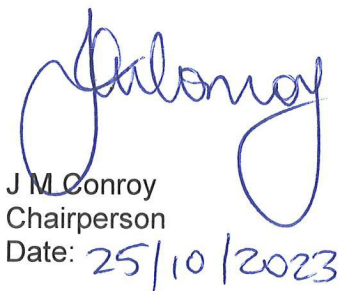 JMConroy
J M Conroy
Chairperson
Date: 25/10/2023